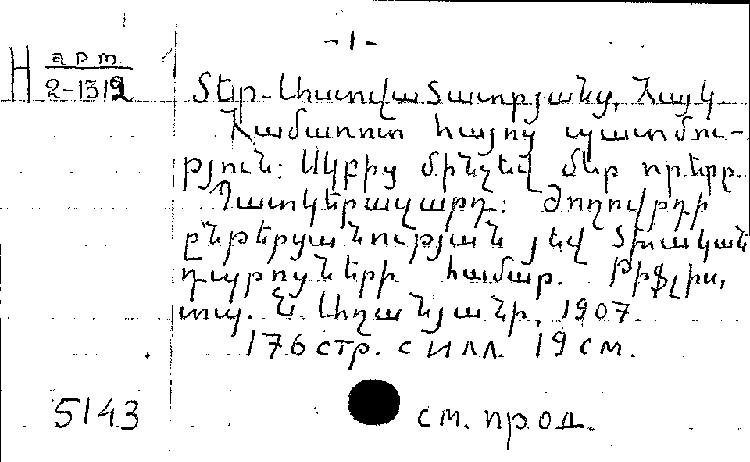 -1-
H арт
2-1312
Տեր-Աստվածատրյանց, Հայկ
Համառոտ հայոց պատմու-
թյուն: Սկբից մինչեվ մեր որերը.
Պատկերազարդ: Ժողովրդի
ընթերցանության յեվ տիական
դպրոցների համար. Թիֆլիս,
տպ. Ն. Աղանյանի, 1907.
176 стр. с илл. 19 см.
5143
см. прод.